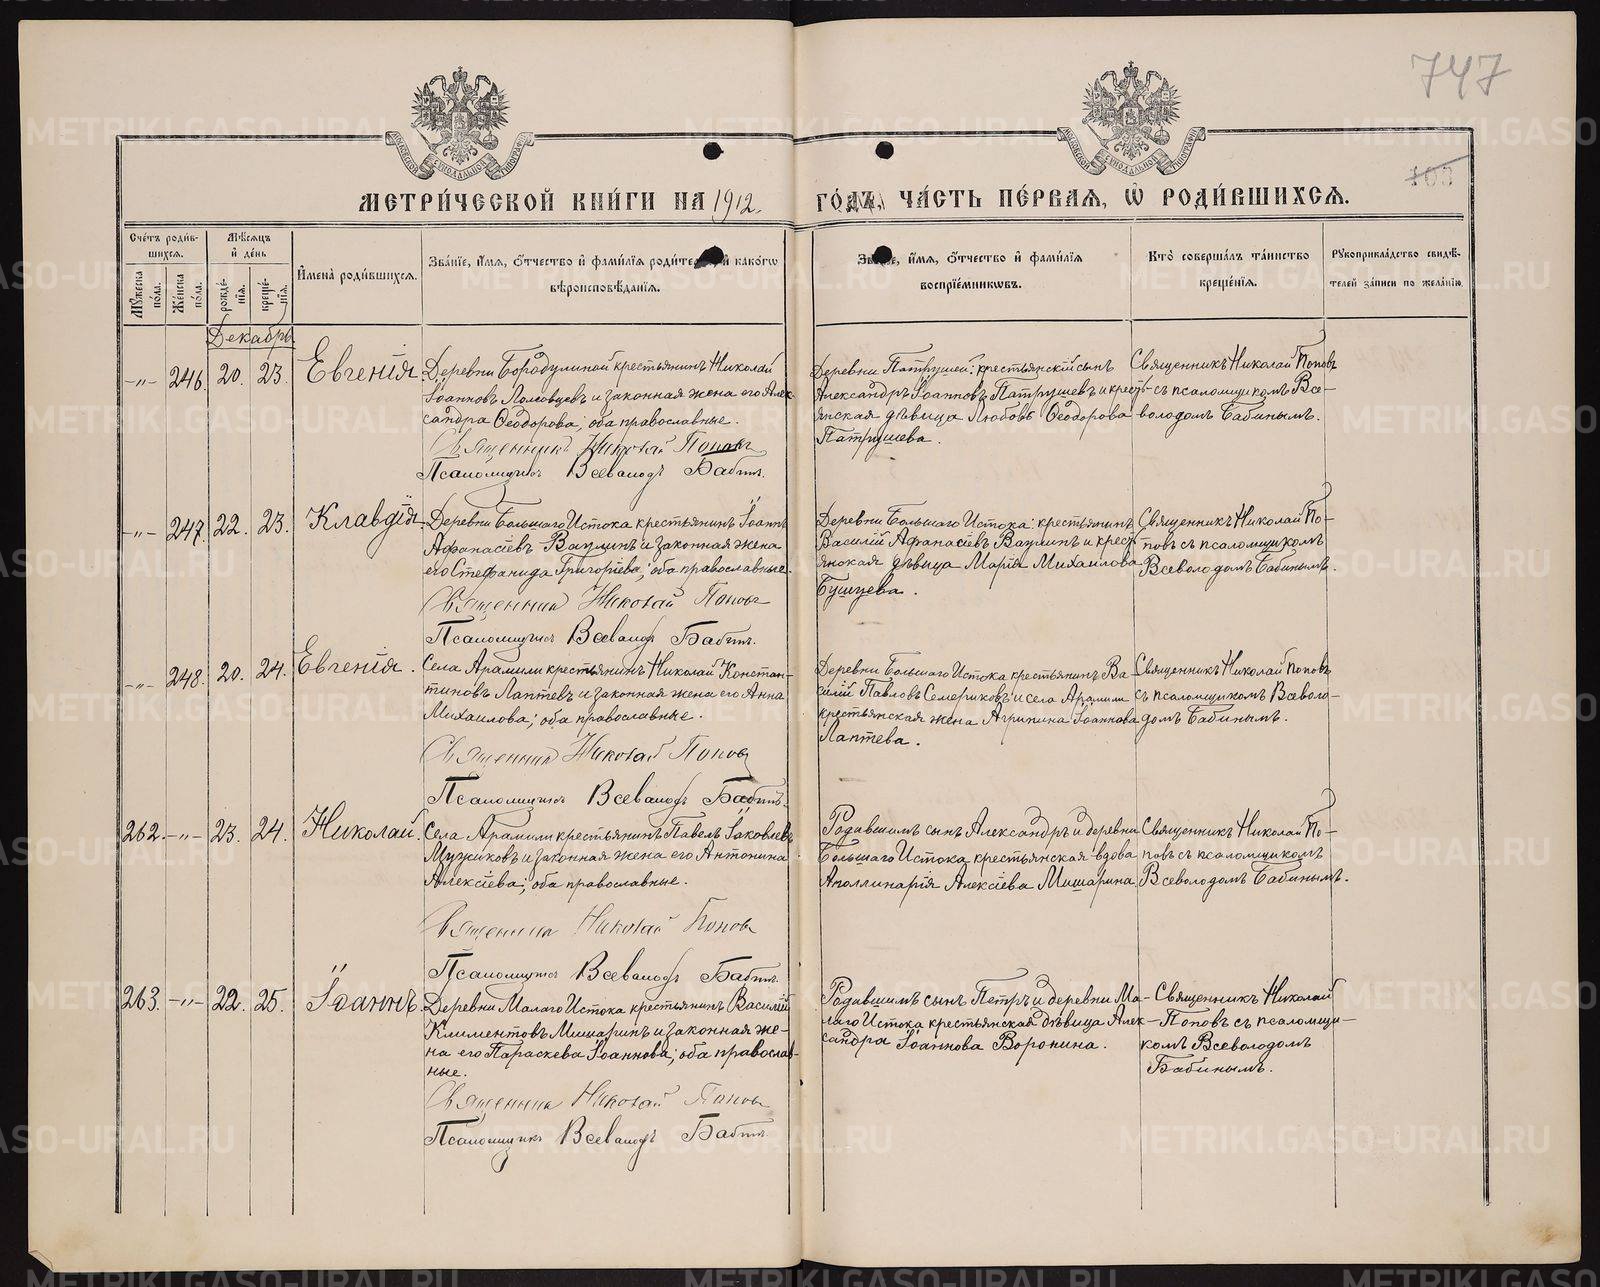 747
МЕТРИ́ЧЕСКОЙ КНИ́ГИ НА 1912 ГОДЪ, ЧА́СТЬ ПЕ́РВАЯ, Ѡ РОДИ́ВШИХСЯ.
Сче́тъ роди́вшихся.
Му́жеска по́ла.
Же́нска по́ла.
Мѣ́сяцъ и де́нь
рожде́нія.
креще́нія.
Имена̀ роди́вшихся.
Зва́ніе, и́мя, о́тчество и фами́лія роди́телей и како́гѡ
вѣроисповѣ́данія.
Зва́ніе, и́мя, о́тчество и фами́лія
воспріе́мникѡвъ.
Кто̀ соверша́лъ та́инство
креще́нія.
Рукоприкла́дство свидѣ́-
телей за́писи по жела́нію.
Декабрь
-"- 246. 20. 23. Евгенія
Деревни Бородулиной крестьянинъ Николай
Іоанновъ Половцевъ и законная жена его Алек-
сандра Ѳеодорова, оба православные.
Священникъ Николай Поповъ
Псаломщикъ Всеволодъ Бабинъ.
Деревни Патрушей: крестьянскій сынъ
Александръ Іоанновъ Патрушевъ и кресть-
янская дѣвица Любовь Ѳеодорова
Патрушева.
Священникъ Николай Поповъ
съ псаломщикомъ Все-
володомъ Бабинымъ.
-"- 247. 22. 23. Клавдія
Деревни Большаго Истока крестьянинъ Іоаннъ
Аѳанасіевъ Ваулинъ и законная жена
его Стефанида Григоріева; оба православные.
Священникъ Николай Поповъ
Псаломщикъ Всеволодъ Бабинъ.
Деревни Большаго Истока: крестьянинъ
Василій Аѳанасіевъ Ваулинъ и крест-
янская дѣвица Марія Михаилова
Бушуева.
Священникъ Николай По-
повъ съ псаломщикомъ
Всеволодомъ Бабинымъ.
-"- 248. 20. 24. Евгенія.
Села Арамили крестьянинъ Николай Констан-
тиновъ Лаптевъ и законная жена его Анна
Михаилова; оба православные.
Священникъ Николай Поповъ
Псаломщикъ Всеволодъ Бабинъ.
Деревни Большаго Истока крестьянинъ Ва-
силій Павловъ Семериковъ и села Арамили
крестьянская жена Агрипина Іоаннова
Лаптева.
Священникъ Николай Поповъ
съ псаломщикомъ Всеволо-
домъ Бабинымъ.
262. -"- 23. 24. Николай.
Села Арамили крестьянинъ Павелъ Іаковлевъ
Мужиковъ и законная жена его Антонина
Алексіева; оба православные.
Священникъ Николай Поповъ
Псаломщикъ Всеволодъ Бабинъ.
Родившимъ сынъ Александръ и деревни
Большаго Истока крестьянская вдова
Аполлинарія Алексіева Мишарина
Священникъ Николай По-
повъ съ псаломщикомъ
Всеволодомъ Бабинымъ.
263. -"- 22. 25. Іоаннъ.
Деревни Малаго Истока крестьянинъ Василій
Климентовъ Мишаринъ и законная же-
на его Параскева Іоаннова; оба православ-
ные.
Священникъ Николай Поповъ
Псаломщикъ Всеволодъ Бабинъ
Родившимъ сынъ Петръ и деревни Ма-
лаго Истока крестьянская дѣвица Алек-
сандра Іоаннова Воронина.
Священникъ Николай
Поповъ съ псаломщи-
комъ Всеволодомъ
Бабинымъ.
METRIKI.GASO-URAL.RU